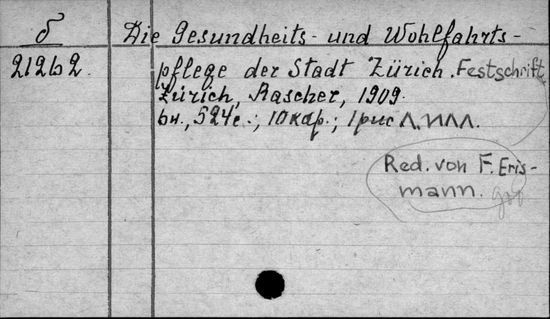 δ
Die Gesundheits- und Wohlfahrts-
21262.
pflege der Stadt Zürich. Festschrift
Zürich, Rascher, 1909.
6н., 524с.; 10 кар.; 1 рис Л. ИЛЛ.
Red. von F. Eris-
mann.